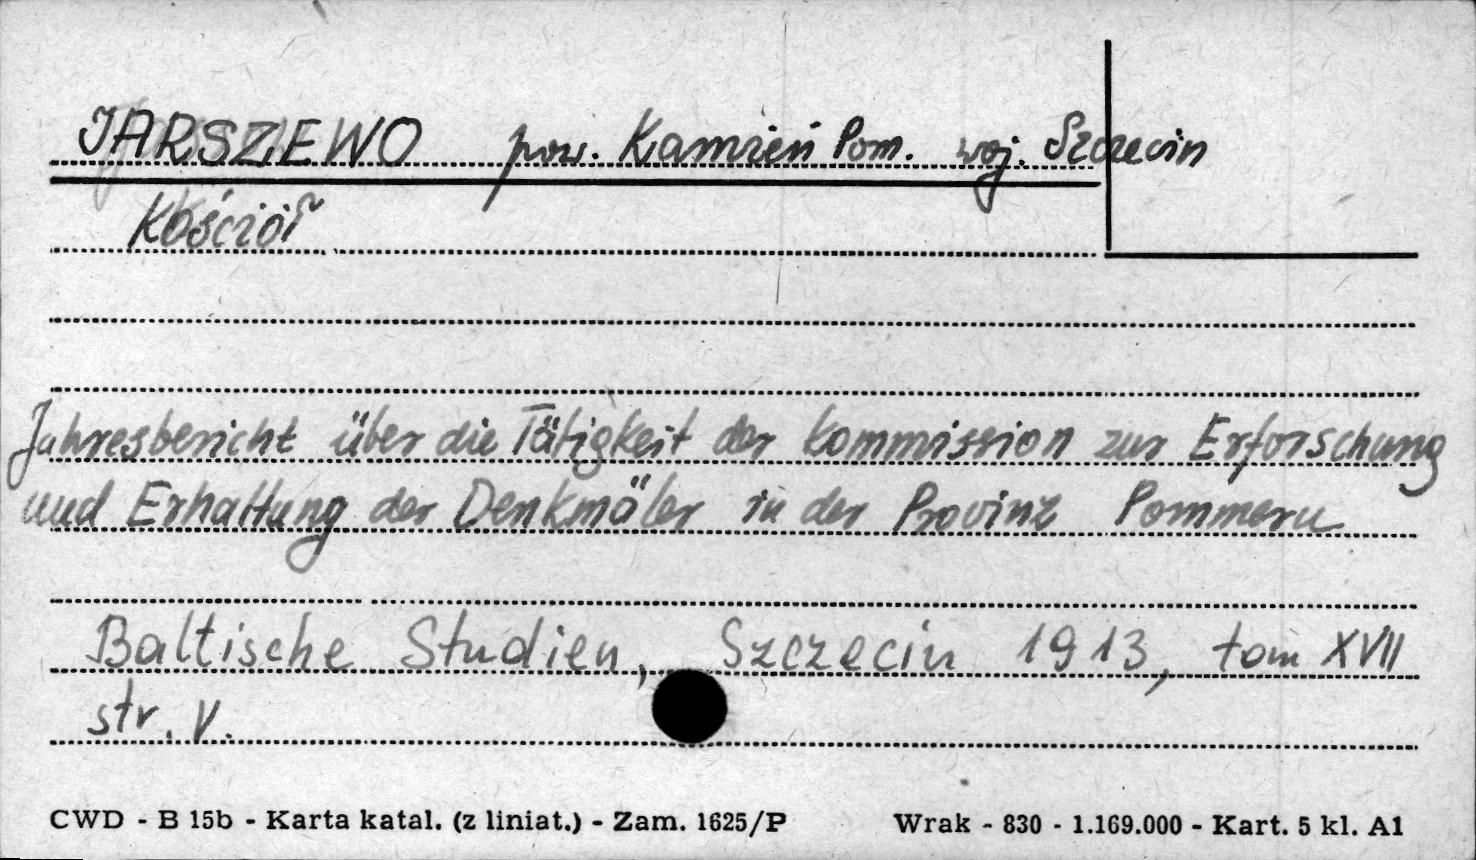 JARSZEWO pow. Kamień Pom. woj. Szczecin
Kościół
Jahresbericht über die Tätigkeit der Kommission zur Erforschung
und Erhaltung der Denkmäler in der Provinz Pommern
Baltische Studien, Szczecin 1913, tom XVII
str. V.
CWD - B 15b - Karta katal. (z liniat.) - Zam. 1625/P Wrak - 830 - 1.169.000 - Kart. 5 kl. A1